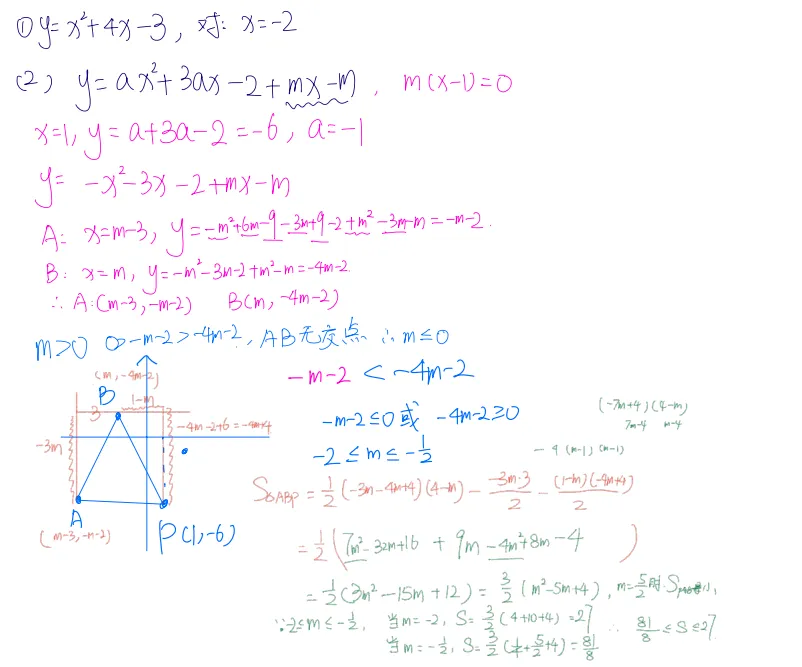 ① y=x²+4x-3, 对: x=-2
(2) y=ax²+3ax-2+mx-m, m(x-1)=0
x=1, y=a+3a-2=-6, a=-1
y= -x²-3x-2+mx-m
A: x=m-3, y=-m²+6m-9-3m+9-2+m²-3m-m=-m-2.
B: x=m, y=-m²-3m-2+m²-m=-4m-2.
∴ A:(m-3, -m-2) B(m, -4m-2)
m>0 0>-m-2>-4m-2, AB无交点 ∴m≤0
-m-2<-4m-2
(m, -4m-2)
B
1-m
3
-4m-2+6=-4m+4
-3m
A
(m-3, -m-2)
P(1,-6)
-m-2≤0或 -4m-2≥0
-2≤m≤-1/2
(-7m+4)(4-m)
7m-4 m-4
-4(m-1)(m-1)
S△ABP=1/2(-3m-4m+4)(4-m)-(-3m·3)/2-((1-m)(-4m+4))/2
=1/2(7m²-32m+16+9m-4m²+8m-4)
=1/2(3m²-15m+12)=3/2(m²-5m+4), m=5/2时.S
∵-2≤m≤-1/2, 当m=-2, S=3/2(4+10+4)=27 ∴ 81/8≤S≤27
当m=-1/2, S=3/2(1/4+5/2+4)=81/8